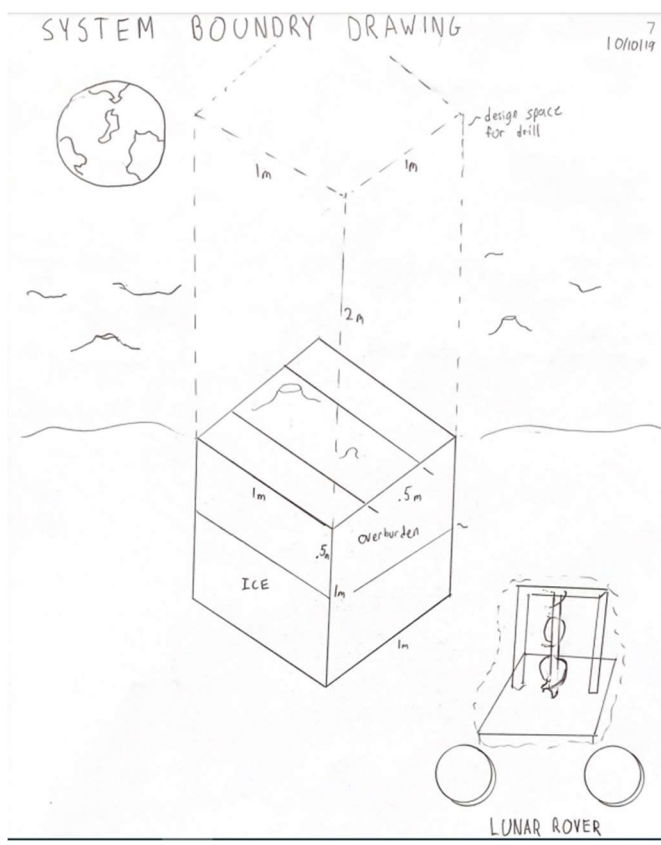 SYSTEM BOUNDRY DRAWING
7
10/10/19
design space
for drill
1m
1m
2m
1m
.5m
overburden
.5m
ICE
1m
1m
LUNAR ROVER